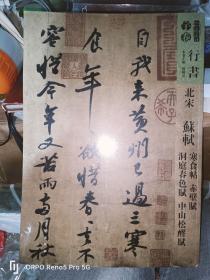 行書
北宋
蘇軾
寒食帖 赤壁賦
洞庭春色賦 中山松醪賦
自我来黃州已過三寒
食年〻欲惜春〻去不
容惜今年又苦雨兩月秋
OPPO Reno5 Pro 5G